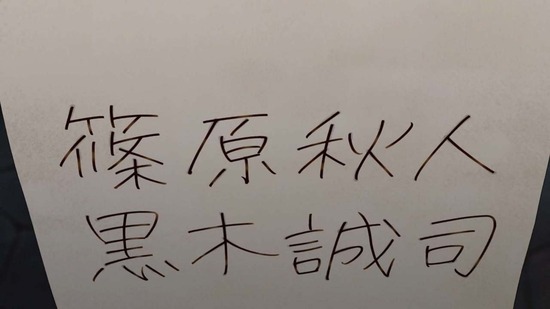 篠原秋人
黒木誠司